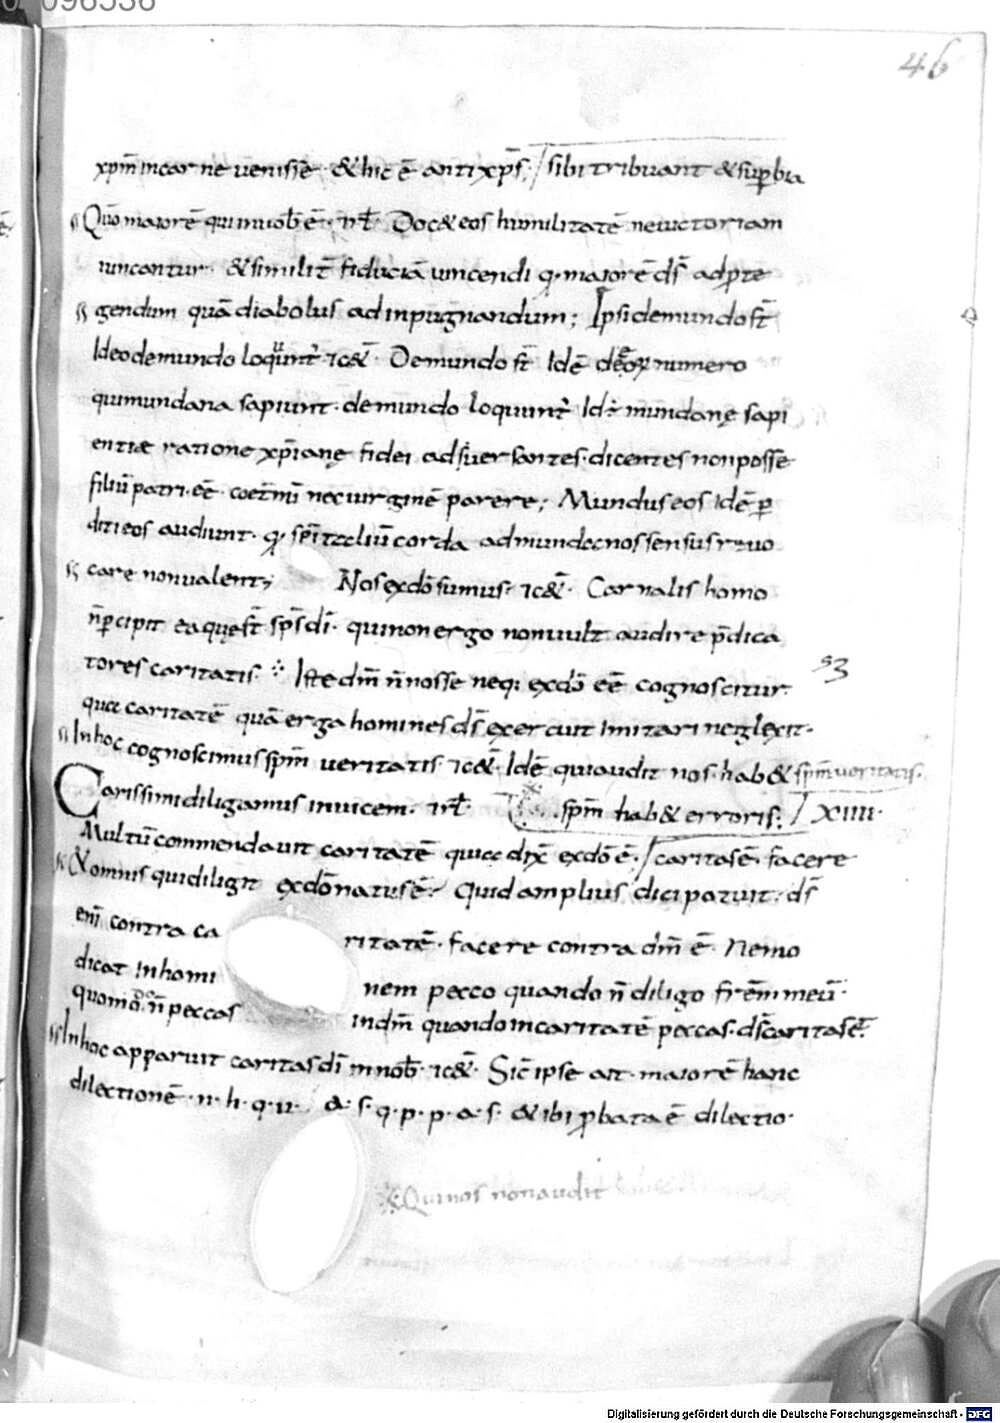 096536
46
xp̄m incarne uenisse · & hic ē antixp̄s; / sibi tribuant & sup̄bia
Quō maiorē qui in uob̄ ē · rł · Doc& eos humilitatē ne uictoriam
uincantur · & similit̄ fiduciā uincendi q · maiorē dš ad p̄te
gendum quā diabolus ad inpugnandum; Ipsi de mundo sŧ
Ideo de mundo loquunt̄ · ⁊c&̄ · De mundo sŧ Idē de eoꝝ numero
qui mundana sapiunt · de mundo loquunt̄ Id ÷ mundanę sapi
entiæ ratione xp̄ianę fidei aduersantes · dicentes non posse
filiū patri · eē · coet̄nū nec uirginē parere; Mundus eos Idē p̄
diti eos audiunt · q · sp̄italiū corda ad mundanos sensus reuo
care non ualent; Nos ex dō sumus · ⁊c&̄ · Carnalis homo
n̄ p̄cipit ea quę sŧ sp̄s dī · qui non ergo non uult audire p̄dica
tores caritatis · Iste dm̄ n̄ nosse neq; ex dō eē cognoscitur ·
quæ caritatē quā erga homines dš exercuit Imitari neglexit ·
In hoc cognoscimus sp̄m ueritatis ⁊c&̄ · Idē qui audit nos · hab& sp̄m ueritatis ·
Carissimi diligamus inuicem · rł · sp̄m hab& erroris; / XIIII ·
Multū commendauit caritatē quia dix̄ ex dō ē; / caritas ē · facere
& omnis qui diligit ex dō natus ē · Quid amplius dici potuit · dš
eni contra caritatē · facere contra dm̄ ē · Nemo
dicat In hominem pecco quando n̄ diligo fr̄em meū ·
quomodo n̄ peccas in dm̄ quando in caritatē peccas · dš caritas ē ·
In hoc apparuit caritas dī in nob̄ · ⁊c&̄ · Sic̄ ipse ait · maiorē hanc
dilectionē · n · h · q · u · a · s · q · p · p · a · s · & ibi p̄bata ē dilectio ·
Qui nos non audit
Digitalisierung gefördert durch die Deutsche Forschungsgemeinschaft - DFG